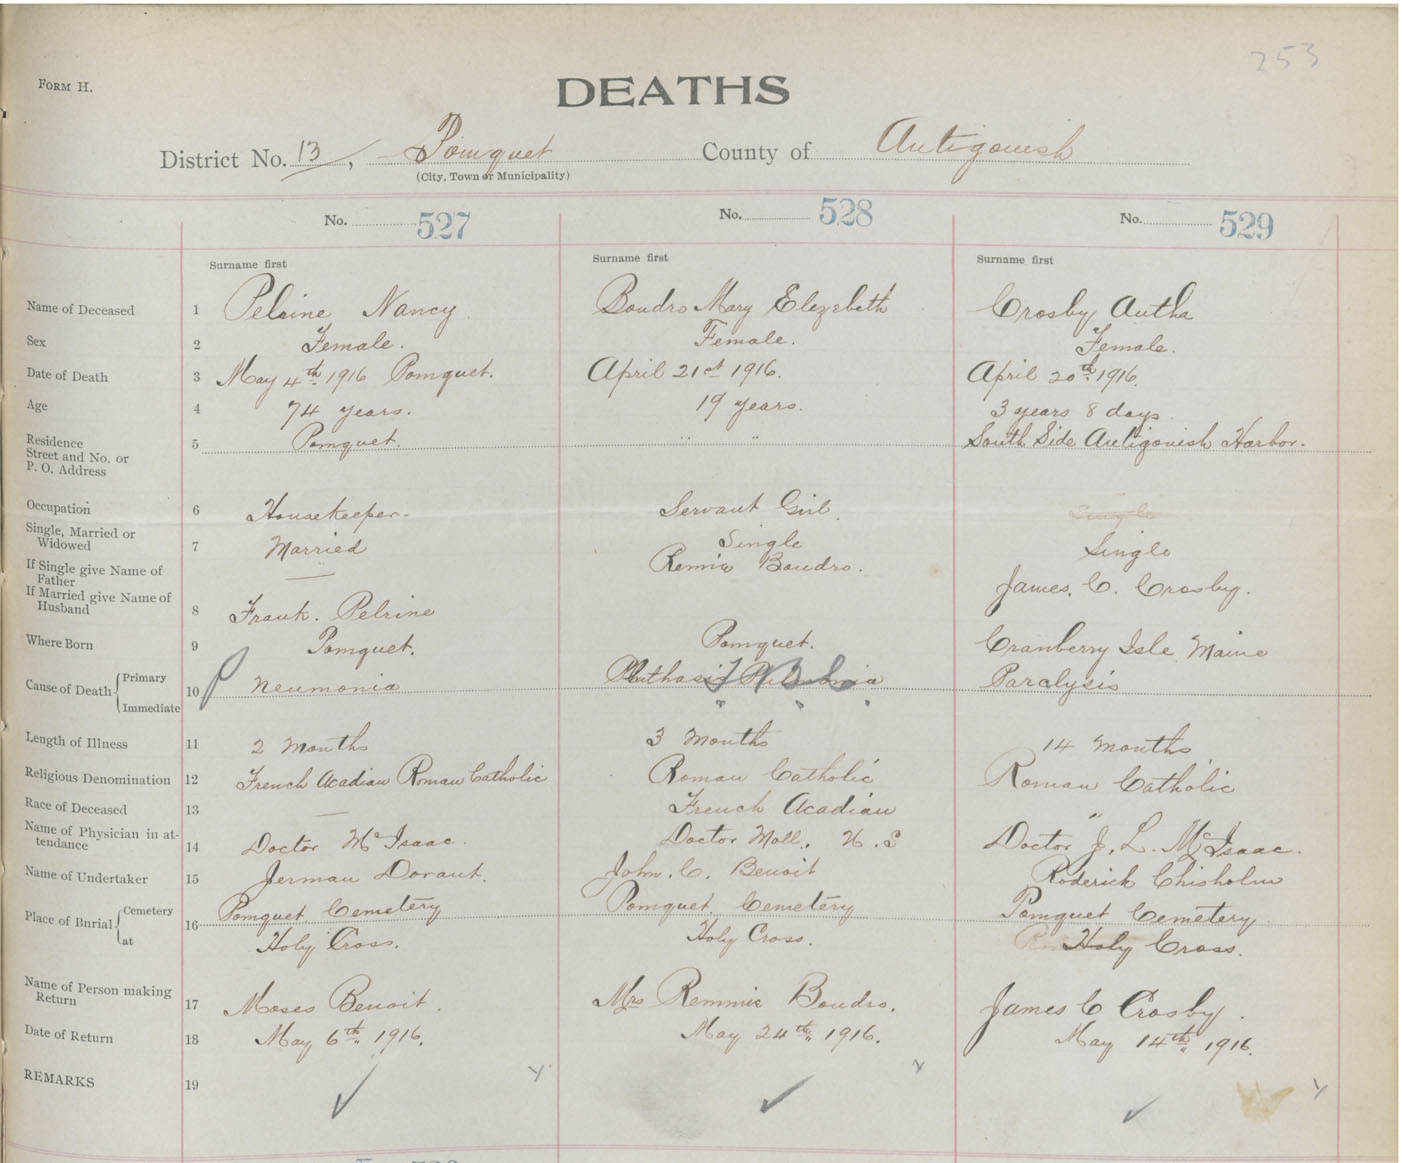 253
FORM H.
DEATHS
District No. 13, Pomquet County of Antigonish
(City, Town or Municipality)
No. 527 No. 528 No. 529
Surname first Surname first Surname first
Name of Deceased 1 Pelrine Nancy Boudro Mary Elezebeth Crosby Autha
Sex 2 Female. Female. Female.
Date of Death 3 May 4th 1916 Pomquet. April 21st 1916. April 20th 1916.
Age 4 74 years. 19 years. 3 years 8 days.
Residence
Street and No. or
P. O. Address 5 Pomquet. " " South Side Antigonish Harbor.
Occupation 6 Housekeeper- Servant Girl Single
Single, Married or
Widowed 7 Married Single Single
If Single give Name of
Father — Remie Boudro. James. C. Crosby.
If Married give Name of
Husband 8 Frank. Pelrine
Where Born 9 Pomquet. Pomquet. Cranberry Isle Maine
Cause of Death { Primary 10 P neumonia TBC Paralysis
Immediate " " "
Length of Illness 11 2 Months 3 Months 14 months
Religious Denomination 12 French Acadian Roman Catholic Roman Catholic Roman Catholic
Race of Deceased 13 — French Acadian "
Name of Physician in at-
tendance 14 Doctor McIsaac. Doctor Moll. U.S Doctor J. L. McIsaac.
Name of Undertaker 15 Jerman Dorant. John. C. Benoit Roderick Chisholm
Place of Burial { Cemetery 16 Pomquet Cemetery Pomquet Cemetery Pomquet Cemetery
at Holy Cross. Holy Cross. Holy Cross.
Name of Person making
Return 17 Moses Benoit. Mrs Remmie Boudro. James C Crosby.
Date of Return 18 May 6th 1916. May 24th 1916. May 14th 1916.
REMARKS 19